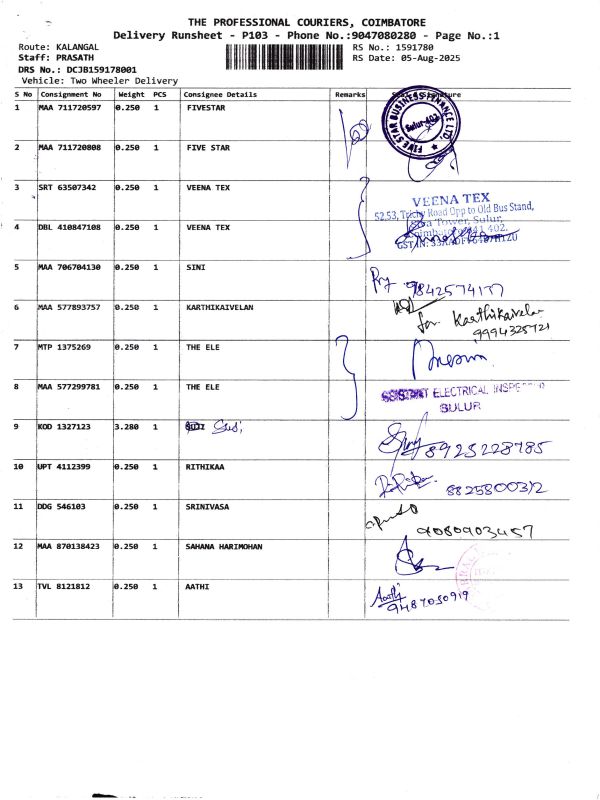 THE PROFESSIONAL COURIERS, COIMBATORE
Delivery Runsheet - P103 - Phone No.:9047080280 - Page No.:1
Route: KALANGAL RS No.: 1591780
Staff: PRASATH RS Date: 05-Aug-2025
DRS No.: DCJB159178001
Vehicle: Two Wheeler Delivery
S No Consignment No Weight PCS Consignee Details Remarks Signature
1 MAA 711720597 0.250 1 FIVESTAR
FIVE STAR BUSINESS FINANCE LTD.
Sulur-402
2 MAA 711720808 0.250 1 FIVE STAR
3 SRT 63507342 0.250 1 VEENA TEX
VEENA TEX
52,53, Trichy Road Opp to Old Bus Stand,
Tower, Sulur,
4 DBL 410847108 0.250 1 VEENA TEX
5 MAA 706704130 0.250 1 SINI
9842574177
6 MAA 577893757 0.250 1 KARTHIKAIVELAN
for Karthikaivelan
9994325721
7 MTP 1375269 0.250 1 THE ELE
8 MAA 577299781 0.250 1 THE ELE
ELECTRICAL
SULUR
9 KOD 1327123 3.280 1
8925228785
10 UPT 4112399 0.250 1 RITHIKAA
8825800312
11 DDG 546103 0.250 1 SRINIVASA
9080903457
12 MAA 870138423 0.250 1 SAHANA HARIMOHAN
13 TVL 8121812 0.250 1 AATHI
Aathi
9487050919